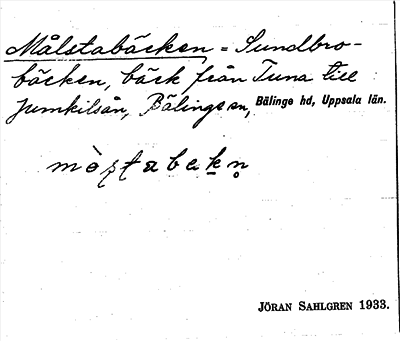 Målstabäcken = Sundbro-
bäcken, bäck från Tuna till
Jumkilsån, Bälinge sn, Bälinge hd, Uppsala län.
JÖRAN SAHLGREN 1933.